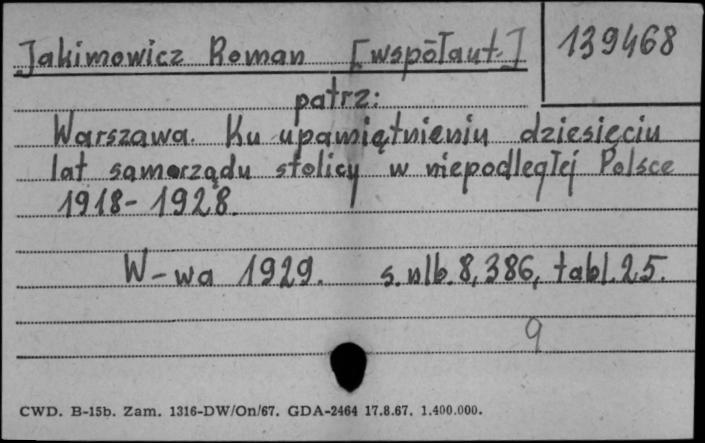 Jakimowicz Roman [współaut.]
139468
patrz:
Warszawa. Ku upamiętnieniu dziesięciu
lat samorządu stolicy w niepodległej Polsce
1918-1928.
W-wa 1929. s. nlb. 8, 386, tabl. 25.
9
CWD. B-15b. Zam. 1316-DW/On/67. GDA-2464 17.8.67. 1.400.000.